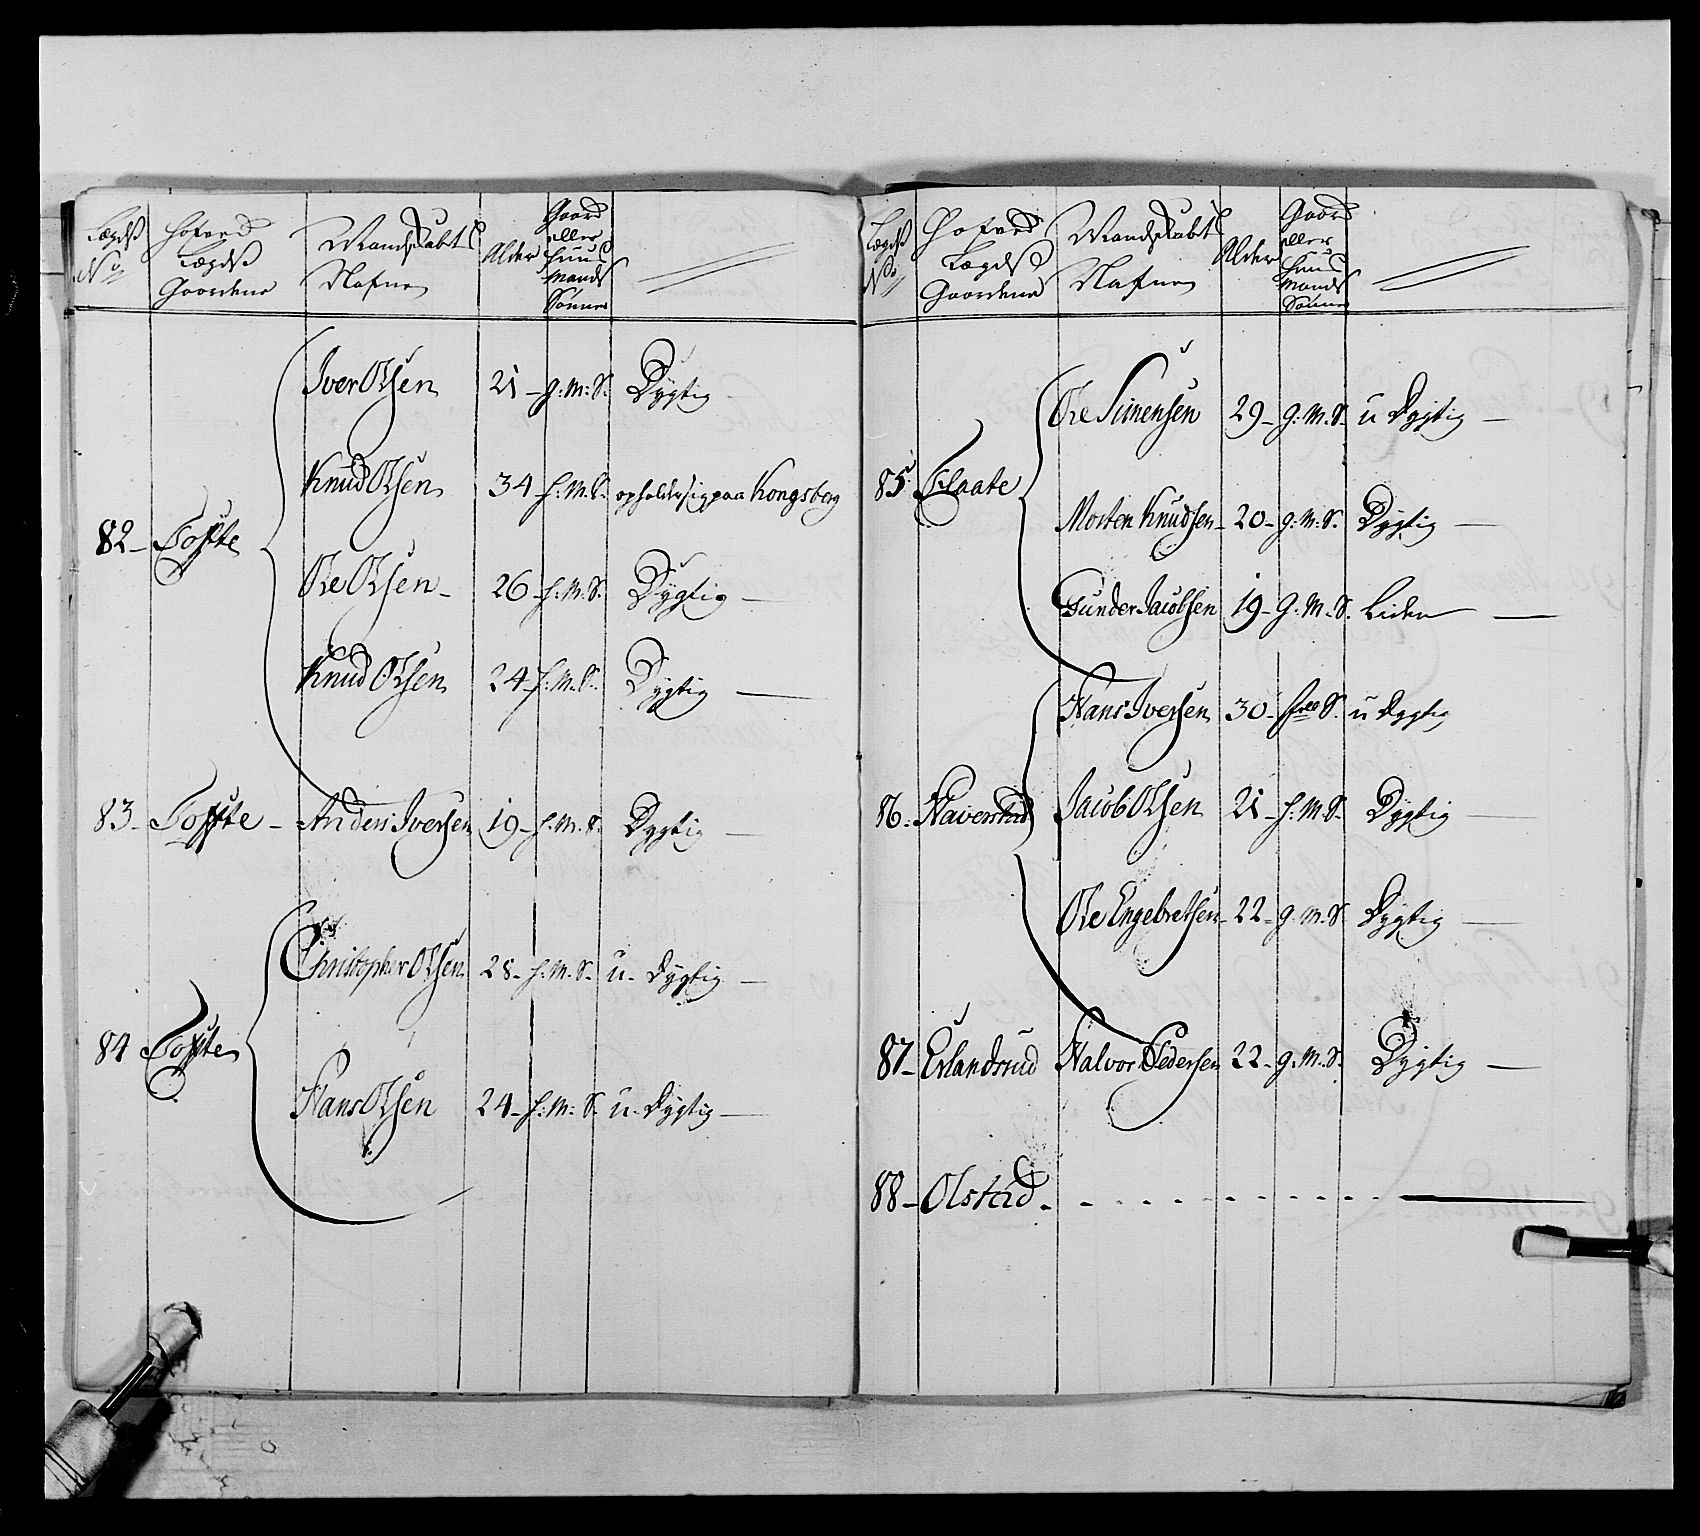 Lægds No
Hofved Lægds Gaardene
Mandskabts Nafne
Alder
Gaard eller Huus Mands Sønner
Iver Olsen 21 - g: M: S. Dygtig
Knud Olsen 34 - h. M. S. opholder sig paa Kongsberg
82 - Tofte
Ole Olsen - 26 - h. M. S. Dygtig
Knud Olsen 24 - h. M. S. Dygtig
83 - Tofte - Anders Iversen 19 - h. M. S. Dygtig
Christopher Olsen 28 - h. M. S. u - Dygtig
84 Tofte
Hans Olsen 24 - h: M: S. u - Dygtig
Lægds No
Hofved Lægds Gaardene
Mandskabts Nafne
Alder
Gaard eller Huus Mands Sønner
Ole Simensen 29 - g: M. S. u Dygtig
85 Flaate
Morten Knudsen - 20 - g: M. S. Dygtig
Gunder Jacobsen 19 - g. M. S. Liden
Hans Iversen 30 - S. u Dygtig
86 - Haverstad Jacob Olsen 21 - h: M. S. Dygtig
Ole Engebretsen - 22 - g. M. S Dygtig
87 - Erlandsrud Halvor Pedersen 22 - g. M. S. Dygtig
88 - Olstad -